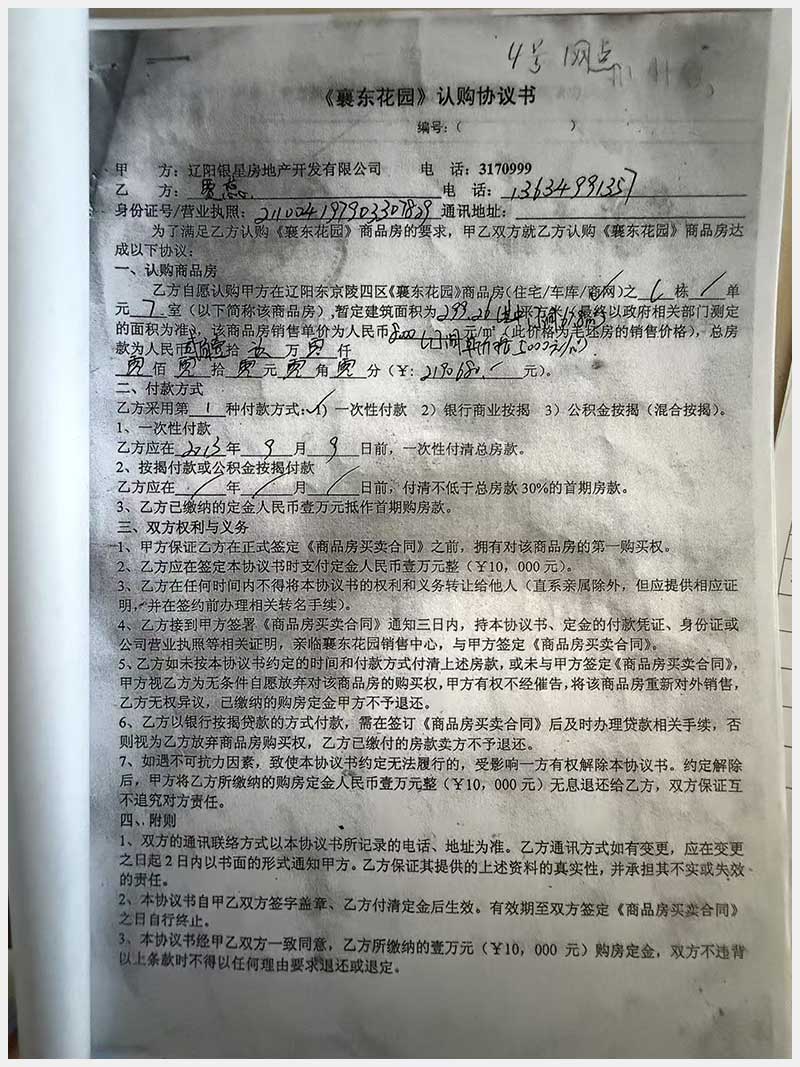 4号网点
《襄东花园》认购协议书
编号:（ ）
甲 方：辽阳银星房地产开发有限公司 电 话：3170999
乙 方： 电 话：13634991357
身份证号/营业执照： 通讯地址：
为了满足乙方认购《襄东花园》商品房的要求，甲乙双方就乙方认购《襄东花园》商品房达
成以下协议：
一、认购商品房
乙方自愿认购甲方在辽阳东京陵四区《襄东花园》商品房（住宅/车库/商网）之 栋 单
元 7 室（以下简称该商品房）,暂定建筑面积为 平方米（最终以政府相关部门测定
的面积为准），该商品房销售单价为人民币 8000 元/㎡（此价格为毛坯房的销售价格），总房
款为人民币 拾 万 仟
佰 拾 元 角 分（￥: 元）。
二、付款方式
乙方采用第 1 种付款方式：1）一次性付款 2）银行商业按揭 3）公积金按揭（混合按揭）。
1、一次性付款
乙方应在 2013 年 9 月 9 日前，一次性付清总房款。
2、按揭付款或公积金按揭付款
乙方应在 / 年 / 月 / 日前，付清不低于总房款 30%的首期房款。
3、乙方已缴纳的定金人民币壹万元抵作首期购房款。
三、双方权利与义务
1、甲方保证乙方在正式签定《商品房买卖合同》之前，拥有对该商品房的第一购买权。
2、乙方应在签定本协议书时支付定金人民币壹万元整（￥10，000 元）。
3、乙方在任何时间内不得将本协议书的权利和义务转让给他人（直系亲属除外，但应提供相应证
明，并在签约前办理相关转名手续）。
4、乙方接到甲方签署《商品房买卖合同》通知三日内，持本协议书、定金的付款凭证、身份证或
公司营业执照等相关证明，亲临襄东花园销售中心，与甲方签定《商品房买卖合同》。
5、乙方如未按本协议书约定的时间和付款方式付清上述房款，或未与甲方签定《商品房买卖合同》，
甲方视乙方为无条件自愿放弃对该商品房的购买权，甲方有权不经催告，将该商品房重新对外销售，
乙方无权异议，已缴纳的购房定金甲方不予退还。
6、乙方以银行按揭贷款的方式付款，需在签订《商品房买卖合同》后及时办理贷款相关手续，否
则视为乙方放弃商品房购买权，乙方已缴付的房款卖方不予退还。
7、如遇不可抗力因素，致使本协议书约定无法履行的，受影响一方有权解除本协议书。约定解除
后，甲方将乙方所缴纳的购房定金人民币壹万元整（￥10，000 元）无息退还给乙方，双方保证互
不追究对方责任。
四、附则
1、双方的通讯联络方式以本协议书所记录的电话、地址为准。乙方通讯方式如有变更，应在变更
之日起 2 日内以书面的形式通知甲方。乙方保证其提供的上述资料的真实性，并承担其不实或失效
的责任。
2、本协议书自甲乙双方签字盖章、乙方付清定金后生效。有效期至双方签定《商品房买卖合同》
之日自行终止。
3、本协议书经甲乙双方一致同意，乙方所缴纳的壹万元（￥10，000 元）购房定金，双方不违背
以上条款时不得以任何理由要求退还或退定。